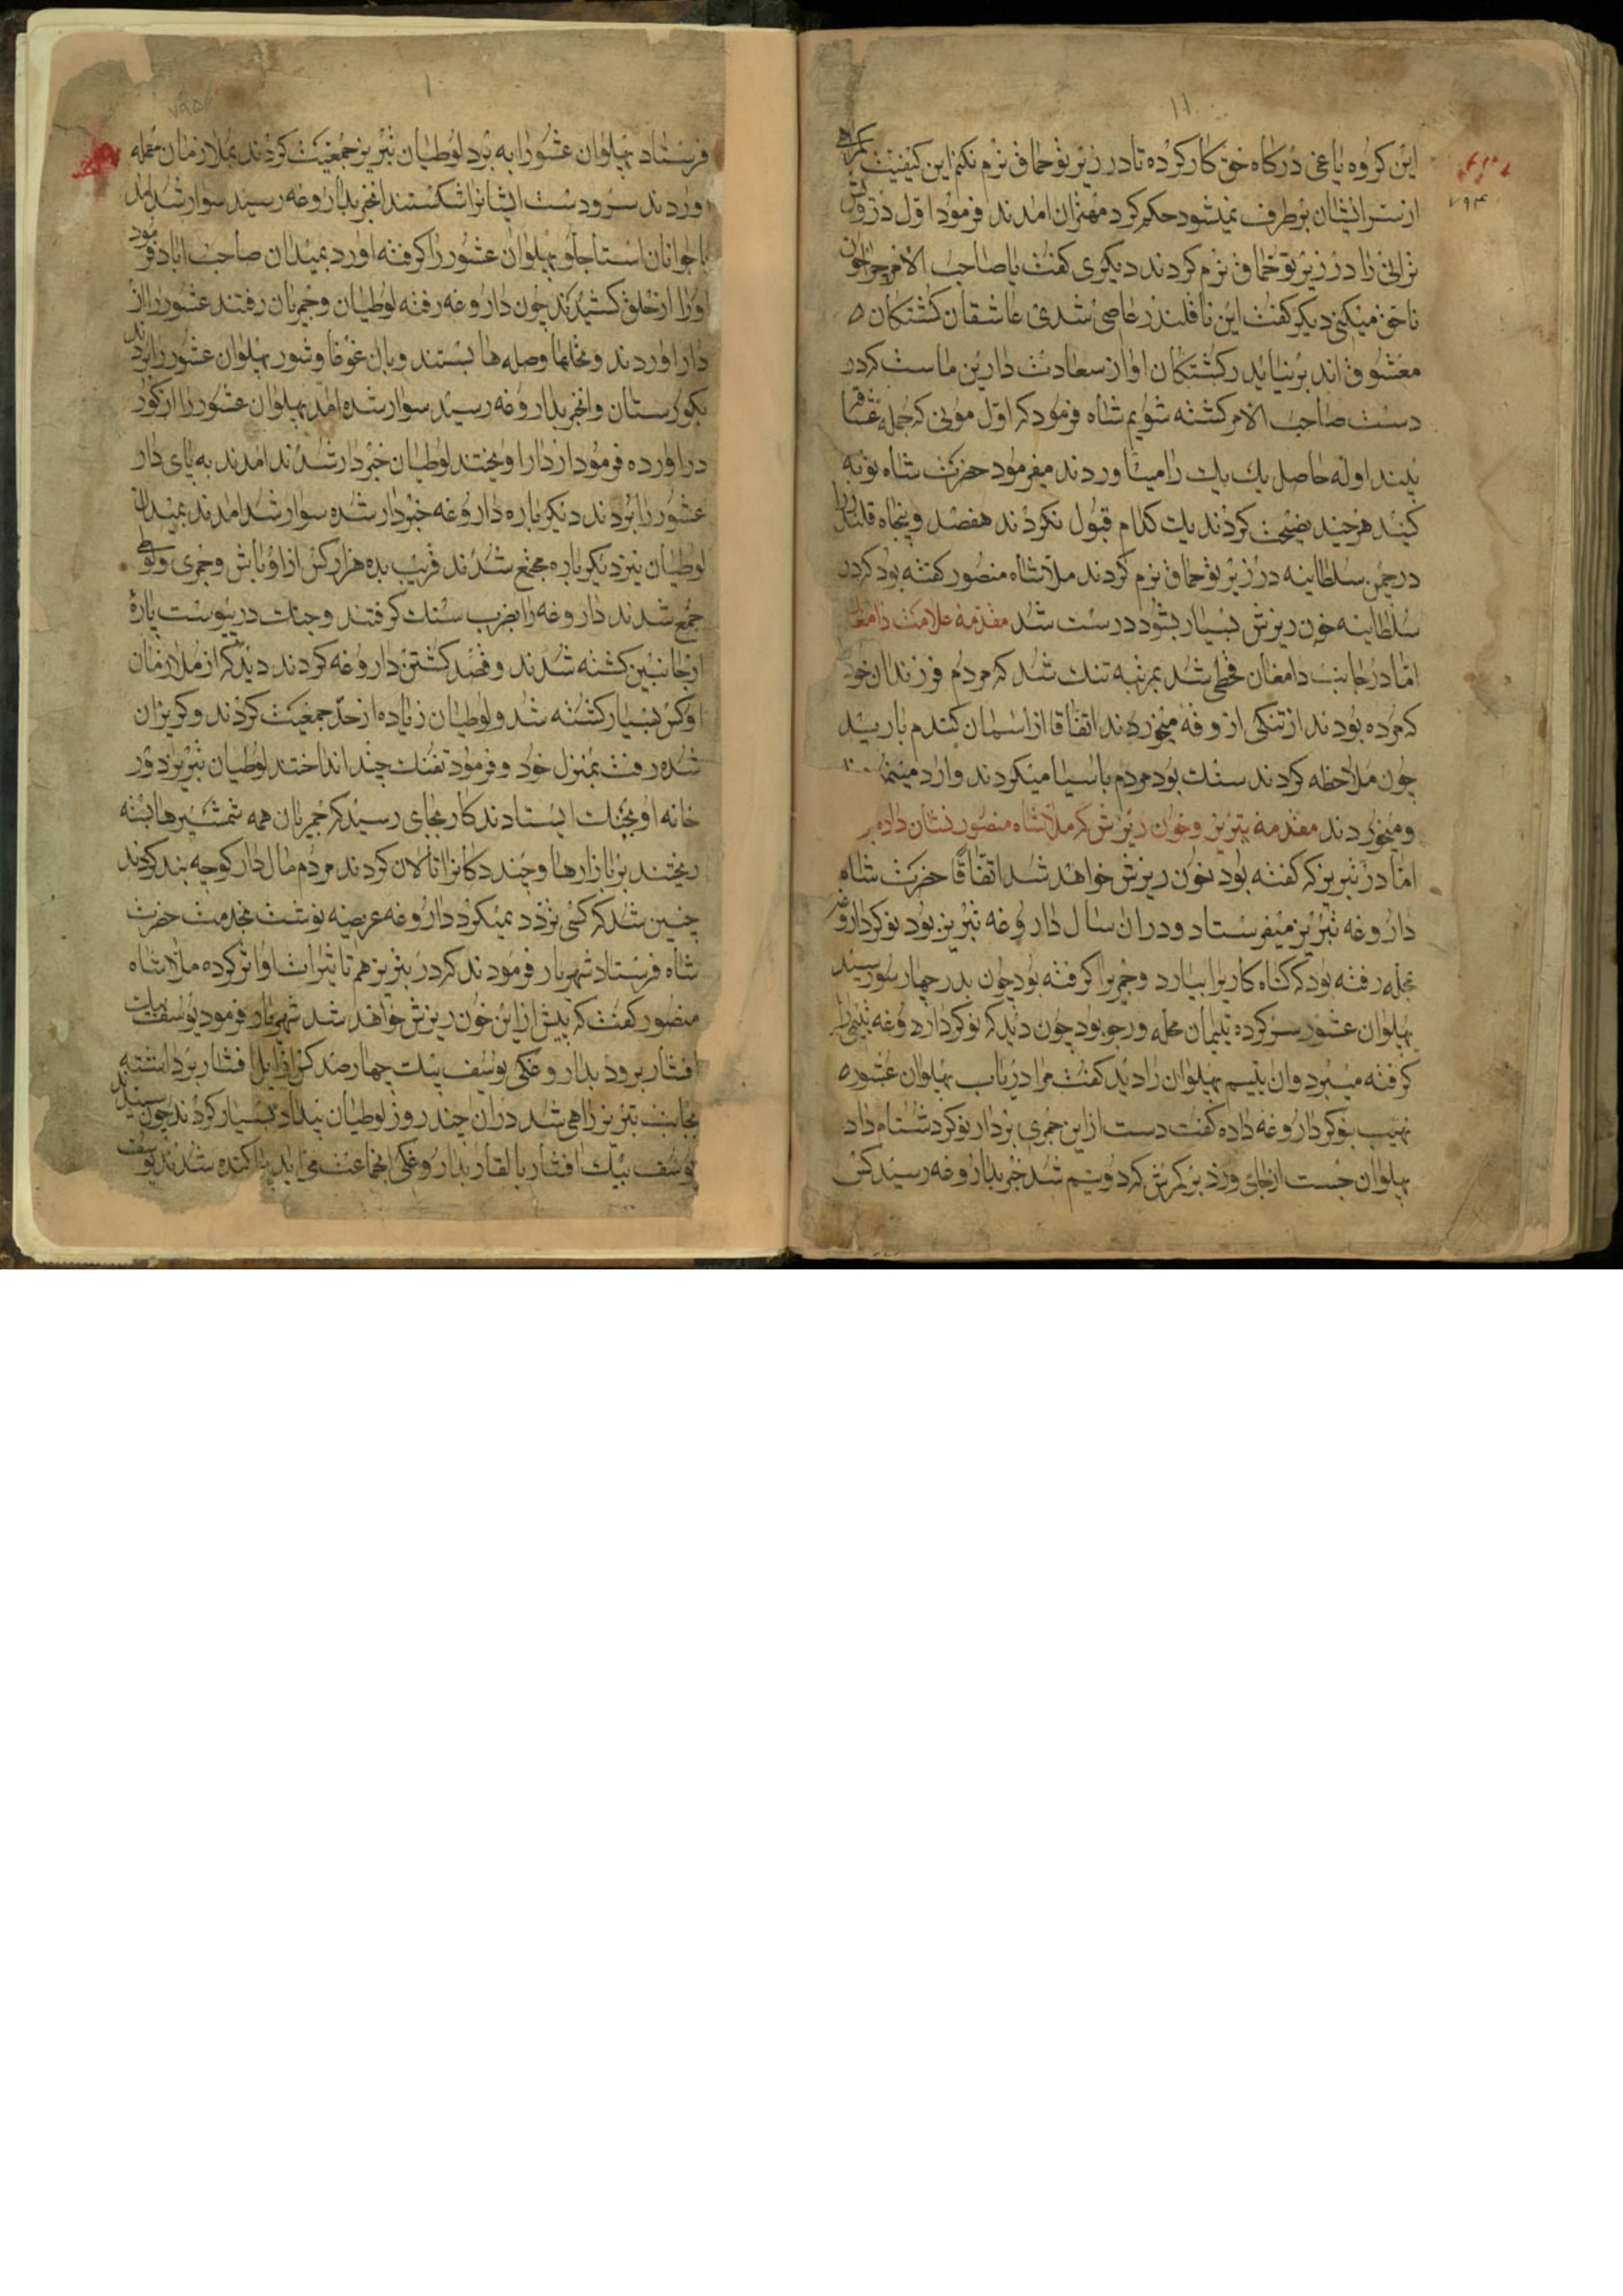 این کروه یاغی درکاه حق کار کرده تا در زیر بوخماق نرم نکنم این کیفیت
از سر ایشان برطرف نمیشود حکم کرد مهتران امدند فرمود اول درویش
ترابی را در زیر بوخماق نرم کردند دیکری کفت یا صاحب الامر چرا خون
ناحق میکنی دیکر کفت این نا قلندر عاصی شدی عاشقان کشتکان
معشوق اند برنیاید رکشتکان اواز سعادت دارین ماست که در
دست صاحب الامر کشته شویم شاه فرمود که اول
یک یک را میاوردند میفرمود حضرت شاه توبه
کنید هر چند نصیحت کردند یک کدام قبول نکردند هفصد و پنجاه قلندر را
در چمن سلطانیه در زیر بوخماق نرم کردند ملا شاه منصور کفته بود که در
سلطانیه خون ریزش بسیار بشود درست شد مقدمه علامت دامغان
اما در جانب دامغان قحطی شد بمرتبه تنک شد که مردم فرزندان خود
که مرده بودند از تنکی ازوقه میخوردند اتفاقا از اسمان کندم بارید
چون ملاحظه کردند سنک بود مردم باسیا میکردند وارد
ومیخوردند مقدمه تبریز وخون ریزش که ملا شاه منصور نشان داده
اما در تبریز که کفته بود خون ریزش خواهد شد اتفاقا حضرت شاه
داروغه تبریز میفرستاد ودران سال داروغه تبریز بود نوکر داروغه
بمحله رفته بود که کناه کاریرا بیارد وجمریرا کرفته بود چون بدر چهار سور رسید
پهلوان عشور سر کرده یتیمان محله ورجو بود چون دید که نوکر داروغه یتیمی را
کرفته میبرد وان یتیم پهلوان را دید کفت مرا دریاب پهلوان عشور
نهیب بنوکر داروغه داده کفت دست از این جمری بردار نوکر دشنام داد
پهلوان جست از جای وزد بر کمرش که دونیم شد خبر بداروغه رسید کس
فرستاد پهلوان عشور را به برد لوطیان تبریز جمعیت کردند بملازمان حمله
اوردند سر ودست ایشانرا شکستند انخبر بداروغه رسید سوار شد امد
با جوانان استاجلو پهلوان عشور را کرفته اورد بمیدان صاحب اباد فرمود
اورا از حلق کشیدند چون داروغه رفته لوطیان وجمریان رفتند عشور را از
دار اوردند ونخلها وصله ها بستند وبان غوغا وشور پهلوان عشور را بردند
بکورستان وانخبر بداروغه رسید سوار شده امد پهلوان عشور را از کور
دراورده فرمود از دار اویختند لوطیان خبردار شدند امدند به پای دار
عشور را بردند دیکر باره داروغه خبردار شده سوار شد امدند بمیدان
لوطیان نیز دیکر باره مجتمع شدند قریب بده هزار کس از اوباش وجمری ولوطی
جمع شدند داروغه را بضرب سنک کرفتند وجنک درپیوست پاره
از جانبین کشته شدند وقصد کشتن داروغه کردند دید که از ملازمان
او کس بسیار کشته شد ولوطیان زیاده از حد جمعیت کردند وکریزان
شده رفت بمنزل خود وفرمود تفنک چند انداختند لوطیان تبریز دور
خانه او بجنک ایستادند کار بجای رسید که جمریان همه شمشیرها بسته
ریختند بر بازارها وچند دکانرا تالان کردند مردم مال دار کوچه بند کردند
چنین شد که کسی تردد نمیکرد داروغه عریضه نوشت بخدمت حضرت
شاه فرستاد شهریار فرمودند که در تبریز هم تاثیرات اواثر کرده ملا شاه
منصور کفت که بیش از این خون ریزش خواهد شد شهریار فرمود یوسف بیک
افشار برود بداروغکی یوسف بیک چهار صد کس از ایل افشار برداشته
بجانب تبریز راهی شد دران چند روز لوطیان بیداد بسیار کردند چون رسیدند
یوسف بیک افشار با لقار بداروغکی انجماعت می اید پراکنده شدند یوسف